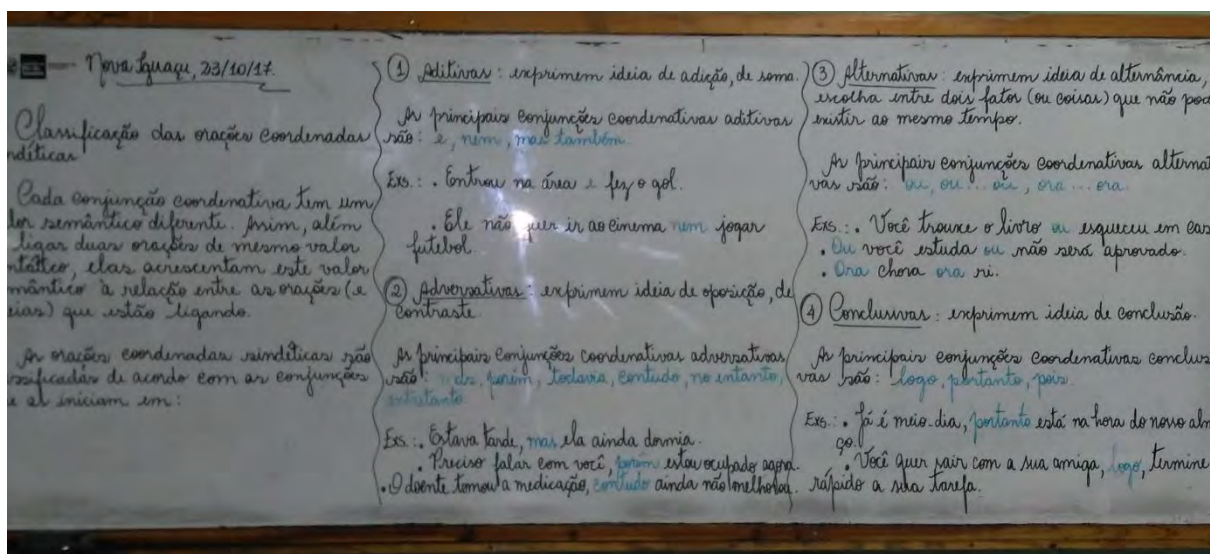 Nova Iguaçu, 23/10/17.
Classificação das orações coordenadas
ndéticas
Cada conjunção coordenativa tem um
lor semântico diferente. Assim, além
ligar duas orações de mesmo valor
ntático, elas acrescentam este valor
mântico à relação entre as orações (e
eias) que estão ligando.
As orações coordenadas sindéticas são
ssificadas de acordo com as conjunções
e as iniciam em:
① Aditivas: exprimem ideia de adição, de soma.
As principais conjunções coordenativas aditivas
são: e, nem, mas também.
Exs.: • Entrou na área e fez o gol.
• Ele não quer ir ao cinema nem jogar
futebol.
② Adversativas: exprimem ideia de oposição, de
contraste.
As principais conjunções coordenativas adversativas
são: mas, porém, todavia, contudo, no entanto,
entretanto.
Exs.: • Estava tarde, mas ela ainda dormia.
• Preciso falar com você, porém estou ocupado agora.
• O doente tomou a medicação, contudo ainda não melhorou.
③ Alternativas: exprimem ideia de alternância,
escolha entre dois fatos (ou coisas) que não pod
existir ao mesmo tempo.
As principais conjunções coordenativas alternat
vas são: ou, ou... ou, ora... ora.
Exs.: • Você trouxe o livro ou esqueceu em cas
• Ou você estuda ou não será aprovado.
• Ora chora ora ri.
④ Conclusivas: exprimem ideia de conclusão.
As principais conjunções coordenativas conclus
vas são: logo, portanto, pois.
Exs.: • Já é meio-dia, portanto está na hora do nosso alm
ço.
• Você quer sair com a sua amiga, logo, termine
rápido a sua tarefa.